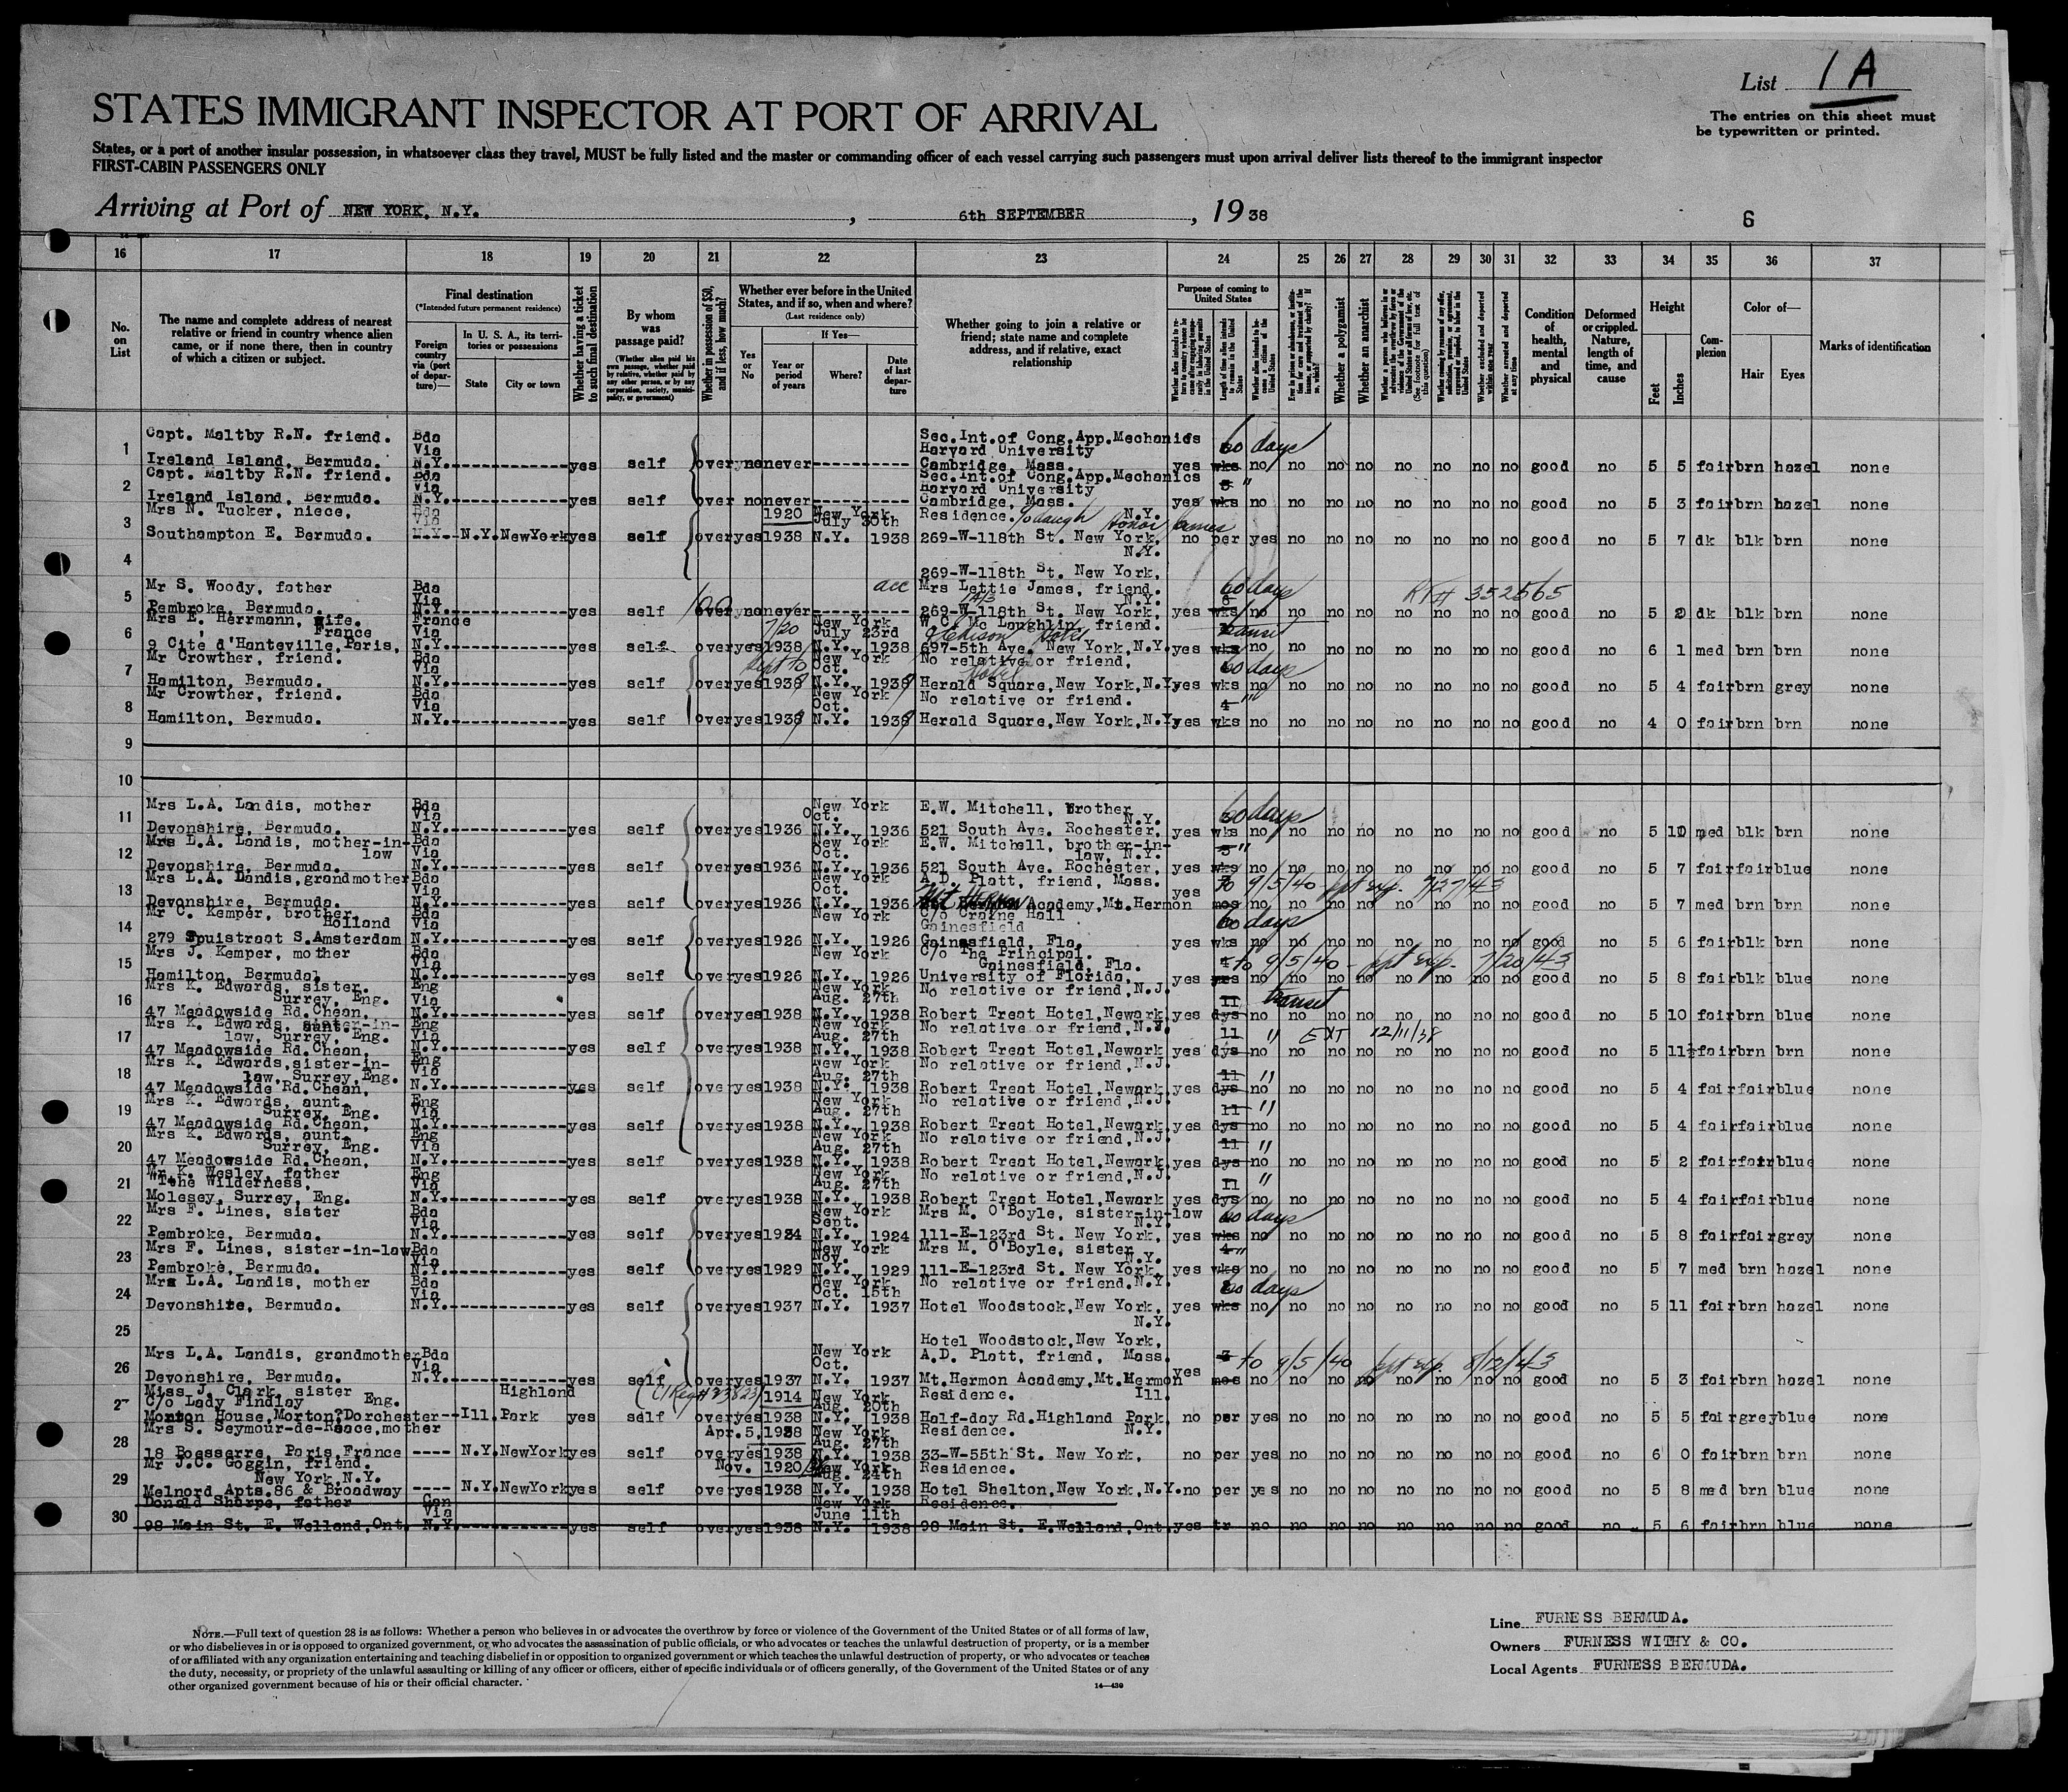 List 1A
The entries on this sheet must
be typewritten or printed.
STATES IMMIGRANT INSPECTOR AT PORT OF ARRIVAL
States, or a port of another insular possession, in whatsoever class they travel, MUST be fully listed and the master or commanding officer of each vessel carrying such passengers must upon arrival deliver lists thereof to the immigrant inspector
FIRST-CABIN PASSENGERS ONLY
Arriving at Port of NEW YORK, N.Y. , 6th SEPTEMBER , 1938
6
16 17 18 19 20 21 22 23 24 25 26 27 28 29 30 31 32 33 34 35 36 37
No. on List
The name and complete address of nearest relative or friend in country whence alien came, or if none there, then in country of which a citizen or subject.
Final destination
(*Intended future permanent residence)
Foreign country via (port of departure)—
In U. S. A., its territories or possessions
State
City or town
Whether having a ticket to such final destination
By whom was passage paid?
(Whether alien paid his own passage, whether paid by relative, whether paid by any other person, or by any corporation, society, municipality, or government)
Whether in possession of $50, and if less, how much?
Whether ever before in the United States, and if so, when and where?
(Last residence only)
Yes or No
If Yes—
Year or period of years
Where?
Date of last departure
Whether going to join a relative or friend; state name and complete address, and if relative, exact relationship
Purpose of coming to United States
Length of time alien intends to remain in the United States
Whether alien intends to become a citizen of the United States
Whether a polygamist
Whether an anarchist
Whether excluded and deported within one year
Whether arrested and deported at any time
Condition of health, mental and physical
Deformed or crippled. Nature, length of time, and cause
Height
Feet
Inches
Complexion
Color of—
Hair
Eyes
Marks of identification
1 Capt. Maltby R.N. friend. Bda Via Sec.Int.of Cong.App.Mechanics 60 days
Harvard University
Ireland Island, Bermuda. N.Y. yes self over no never Cambridge, Mass. yes wks no no no no no no no no good no 5 5 fair brn hazel none
2 Capt. Maltby R.N. friend. Bda Via Sec.Int.of Cong.App.Mechanics "
Harvard University
Ireland Island, Bermuda. N.Y. yes self over no never Cambridge, Mass. yes wks no no no no no no no no good no 5 3 fair brn hazel none
3 Mrs N. Tucker, niece, Bda Via 1920 New York July 30th Residence. N.Y.
Southampton E. Bermuda. N.Y. NewYork yes self over yes 1938 N.Y. 1938 269-W-118th St. New York, no per yes no no no no no no no good no 5 7 dk blk brn none
N.Y.
4 269-W-118th St. New York,
5 Mr S. Woody, father Bda Via Mrs Lettie James, friend. N.Y. 60 days 352565
Pembroke, Bermuda. N.Y. yes self over no never 269-W-118th St. New York, yes wks no no no no no no no no good no 5 2 dk blk brn none
6 Mrs E. Herrmann, wife. France Via 7/20 New York July 23rd W.C. Mc Loughlin, friend. transit
France
9 Cite d'Hanteville, Paris, N.Y. yes self over yes 1938 N.Y. 1938 697-5th Ave, New York, N.Y. yes wks no no no no no no no no good no 6 1 med brn brn none
7 Mr Crowther, friend. Bda Via New York Oct. No relative or friend, 60 days
Hotel
Hamilton, Bermuda. N.Y. yes self over yes 1938 N.Y. 1938 Herald Square, New York, N.Y. yes wks no no no no no no no no good no 5 4 fair brn grey none
8 Mr Crowther, friend. Bda Via New York Oct. No relative or friend. "
Hamilton, Bermuda. N.Y. yes self over yes 1938 N.Y. 1938 Herald Square, New York, N.Y. yes wks no no no no no no no no good no 4 0 fair brn brn none
9
10
11 Mrs L.A. Landis, mother Bda Via New York Oct. E.W. Mitchell, brother N.Y. 60 days
Devonshire, Bermuda. N.Y. yes self over yes 1936 N.Y. 1936 521 South Ave. Rochester, yes wks no no no no no no no no good no 5 10 med blk brn none
12 Mrs L.A. Landis, mother-in-law Bda Via New York Oct. E.W. Mitchell, brother-in-law, N.Y. "
Devonshire, Bermuda. N.Y. yes self over yes 1936 N.Y. 1936 521 South Ave. Rochester, yes wks no no no no no no no no good no 5 7 fair fair blue none
13 Mrs L.A. Landis, grandmother Bda Via New York Oct. A.D. Platt, friend, Mass. to 9/5/40 ppt exp. 7/27/43
Devonshire, Bermuda. N.Y. yes self over yes 1936 N.Y. 1936 Mt Hermon Academy, Mt. Hermon yes mos no no no no no no no no good no 5 7 med brn brn none
14 Mr C. Kemper, brother, Holland Bda Via New York C/o Craine Hall 60 days
Gainesfield
279 Spuistraat S. Amsterdam N.Y. yes self over yes 1926 N.Y. 1926 Gainesfield, Fla. yes wks no no no no no no no no good no 5 6 fair blk brn none
15 Mrs J. Kemper, mother Bda Via New York C/o The Principal. to 9/5/40 - ppt exp. 7/20/43
Gainesfield, Fla.
Hamilton, Bermuda N.Y. yes self over yes 1926 N.Y. 1926 University of Florida, yes no no no no no no no no good no 5 8 fair blk blue none
16 Mrs K. Edwards, sister. Surrey, Eng. Eng Via New York Aug. 27th No relative or friend, N.J. 11 transit
47 Meadowside Rd. Chean, N.Y. yes self over yes 1938 N.Y. 1938 Robert Treat Hotel, Newark yes dys no no no no no no no no good no 5 10 fair brn blue none
17 Mrs K. Edwards, sister-in-law, Surrey, Eng. Eng Via New York Aug. 27th No relative or friend, N.J. 11 " EXT 12/11/38
47 Meadowside Rd. Chean, N.Y. yes self over yes 1938 N.Y. 1938 Robert Treat Hotel, Newark yes dys no no no no no no no no good no 5 11½ fair brn brn none
18 Mrs K. Edwards, sister-in-law, Surrey, Eng. Eng Via New York Aug. 27th No relative or friend, N.J. 11 "
47 Meadowside Rd. Chean, N.Y. yes self over yes 1938 N.Y. 1938 Robert Treat Hotel, Newark yes dys no no no no no no no no good no 5 4 fair fair blue none
19 Mrs K. Edwards, aunt. Surrey, Eng. Eng Via New York Aug. 27th No relative or friend, N.J. 11 "
47 Meadowside Rd. Chean, N.Y. yes self over yes 1938 N.Y. 1938 Robert Treat Hotel, Newark, yes dys no no no no no no no no good no 5 4 fair fair blue none
20 Mrs K. Edwards, aunt. Surrey, Eng. Eng Via New York Aug. 27th No relative or friend, N.J. 11 "
47 Meadowside Rd. Chean, N.Y. yes self over yes 1938 N.Y. 1938 Robert Treat Hotel, Newark, yes dys no no no no no no no no good no 5 2 fair fair blue none
21 Mr K. Wesley, father The Wilderness, Eng Via New York Aug. 27th No relative or friend, N.J. 11 "
Molesey, Surrey, Eng. N.Y. yes self over yes 1938 N.Y. 1938 Robert Treat Hotel, Newark yes dys no no no no no no no no good no 5 4 fair fair blue none
22 Mrs F. Lines, sister Bda Via New York Sept. Mrs M. O'Boyle, sister-in-law N.Y. 60 days
Pembroke, Bermuda. N.Y. yes self over yes 1924 N.Y. 1924 111-E-123rd St. New York, yes wks no no no no no no no no good no 5 8 fair fair grey none
23 Mrs F. Lines, sister-in-law Bda Via New York Nov. Mrs M. O'Boyle, sister N.Y. 4 "
Pembroke, Bermuda. N.Y. yes self over yes 1929 N.Y. 1929 111-E-123rd St. New York, yes wks no no no no no no no no good no 5 7 med brn hazel none
24 Mrs L.A. Landis, mother Bda Via New York Oct. 15th No relative or friend. N.Y. 60 days
Devonshire, Bermuda. N.Y. yes self over yes 1937 N.Y. 1937 Hotel Woodstock, New York, yes wks no no no no no no no no good no 5 11 fair brn hazel none
N.Y.
25 Hotel Woodstock, New York,
26 Mrs L.A. Landis, grandmother Bda Via New York Oct. A.D. Platt, friend, Mass. to 9/5/40 ppt exp. 8/12/43
Devonshire, Bermuda. N.Y. yes self over yes 1937 N.Y. 1937 Mt. Hermon Academy, Mt. Hermon yes mos no no no no no no no no good no 5 3 fair brn hazel none
27 Miss J. Clark, sister Highland 1914 New York Aug. 20th Residence. Ill.
C/o Lady Findlay Eng.
Morton House, Morton, Dorchester Ill. Park yes self over yes 1938 N.Y. 1938 Half-day Rd. Highland Park, no per yes no no no no no no no good no 5 5 fair grey blue none
28 Mrs S. Seymour-de-Rance, mother Apr. 5, New York Aug. 27th Residence. N.Y.
18 Boesserre, Paris, France N.Y. NewYork yes self over yes 1938 N.Y. 1938 33-W-55th St. New York, no per yes no no no no no no no good no 6 0 fair brn brn none
29 Mr J.C. Goggin, friend. New York, N.Y. Nov. 1920 New York Aug. 24th Residence.
Melnord Apts. 86 & Broadway N.Y. NewYork yes self over yes 1938 N.Y. 1938 Hotel Shelton, New York, N.Y. no per yes no no no no no no no good no 5 8 med brn blue none
30 Donald Sharpe, father Can Via New York June 11th Residence.
98 Main St. E. Welland, Ont. N.Y. yes self over yes 1938 N.Y. 1938 98 Main St. E. Welland, Ont. yes tr no no no no no no no no good no 5 6 fair brn blue none
NOTE.—Full text of question 28 is as follows: Whether a person who believes in or advocates the overthrow by force or violence of the Government of the United States or of all forms of law,
or who disbelieves in or is opposed to organized government, or who advocates the assassination of public officials, or who advocates or teaches the unlawful destruction of property, or is a member
of or affiliated with any organization entertaining and teaching disbelief in or opposition to organized government or which teaches the unlawful destruction of property, or who advocates or teaches
the duty, necessity, or propriety of the unlawful assaulting or killing of any officer or officers, either of specific individuals or of officers generally, of the Government of the United States or of any
other organized government because of his or their official character.
14—430
Line FURNESS BERMUDA.
Owners FURNESS WITHY & CO.
Local Agents FURNESS BERMUDA.